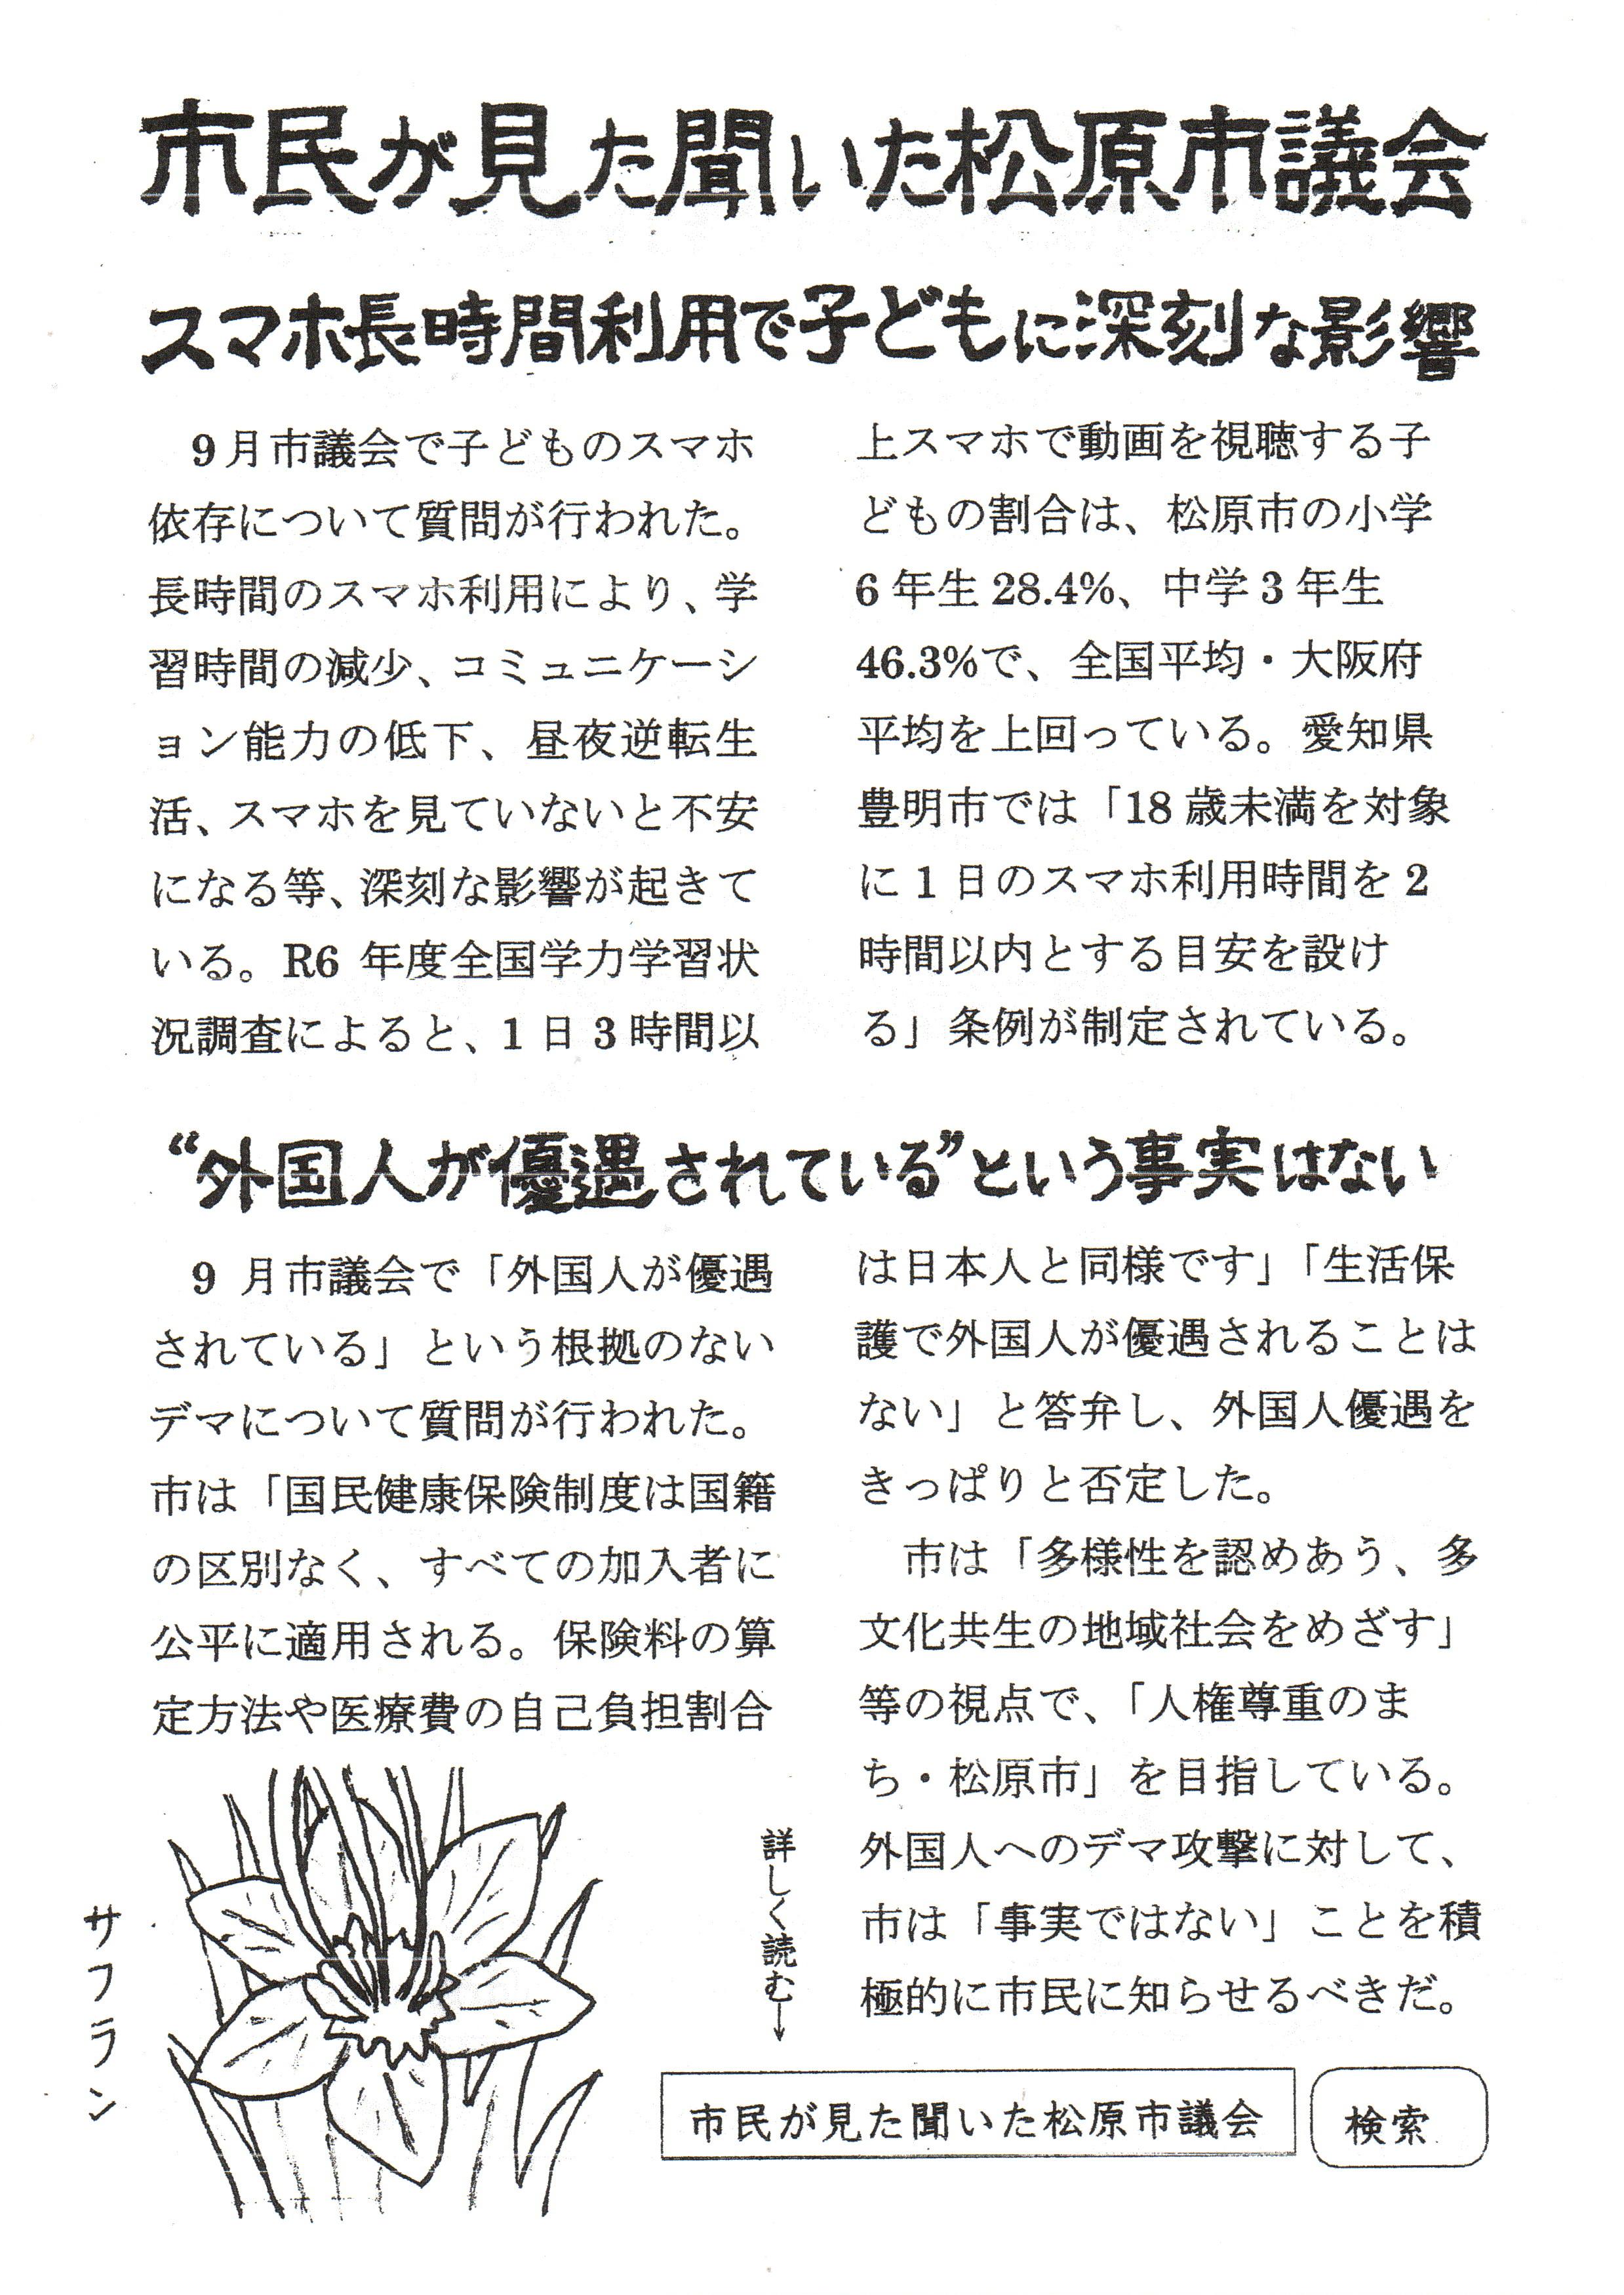 市民が見た聞いた松原市議会
スマホ長時間利用で子どもに深刻な影響
9月市議会で子どものスマホ
依存について質問が行われた。
長時間のスマホ利用により、学
習時間の減少、コミュニケーシ
ョン能力の低下、昼夜逆転生
活、スマホを見ていないと不安
になる等、深刻な影響が起きて
いる。R6 年度全国学力学習状
況調査によると、1 日 3 時間以
上スマホで動画を視聴する子
どもの割合は、松原市の小学
6 年生 28.4%、中学 3 年生
46.3%で、全国平均・大阪府
平均を上回っている。愛知県
豊明市では「18 歳未満を対象
に 1 日のスマホ利用時間を 2
時間以内とする目安を設け
る」条例が制定されている。
“外国人が優遇されている”という事実はない
9 月市議会で「外国人が優遇
されている」という根拠のない
デマについて質問が行われた。
市は「国民健康保険制度は国籍
の区別なく、すべての加入者に
公平に適用される。保険料の算
定方法や医療費の自己負担割合
は日本人と同様です」「生活保
護で外国人が優遇されることは
ない」と答弁し、外国人優遇を
きっぱりと否定した。
市は「多様性を認めあう、多
文化共生の地域社会をめざす」
等の視点で、「人権尊重のま
ち・松原市」を目指している。
外国人へのデマ攻撃に対して、
市は「事実ではない」ことを積
極的に市民に知らせるべきだ。
サフラン
詳しく読む→
市民が見た聞いた松原市議会
検索